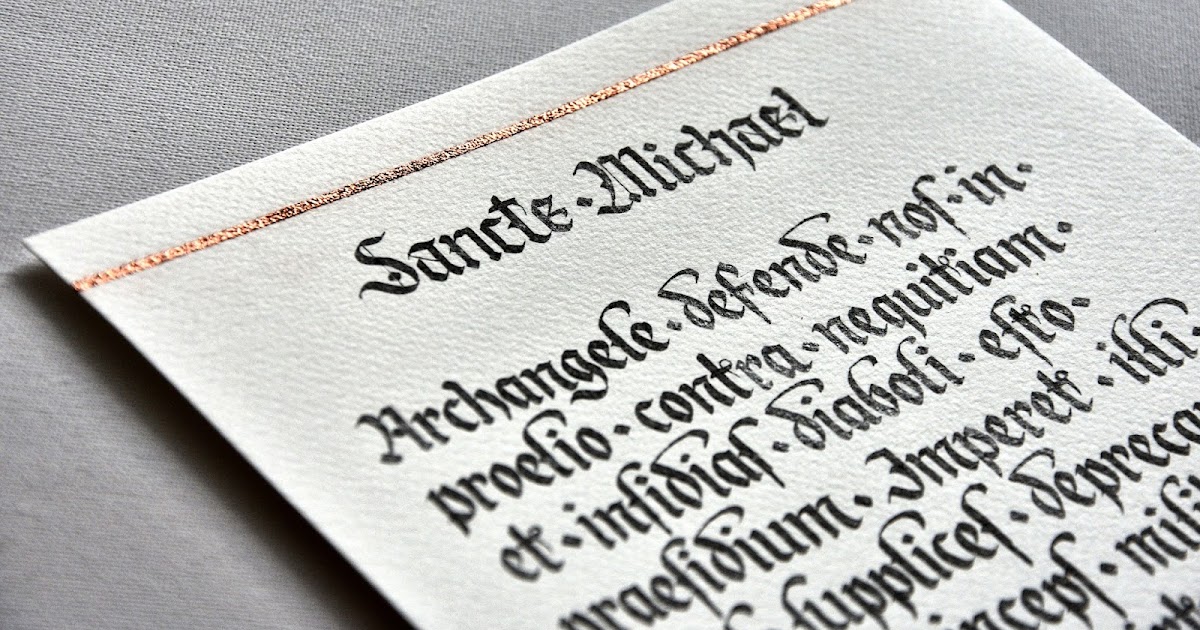 Sancte · Michael
Archangele · defende · nos · in ·
proelio · contra · nequitiam ·
et · insidias · diaboli · esto ·
praesidium · Imperet · illi ·
supplices · depreca
inceps · mili